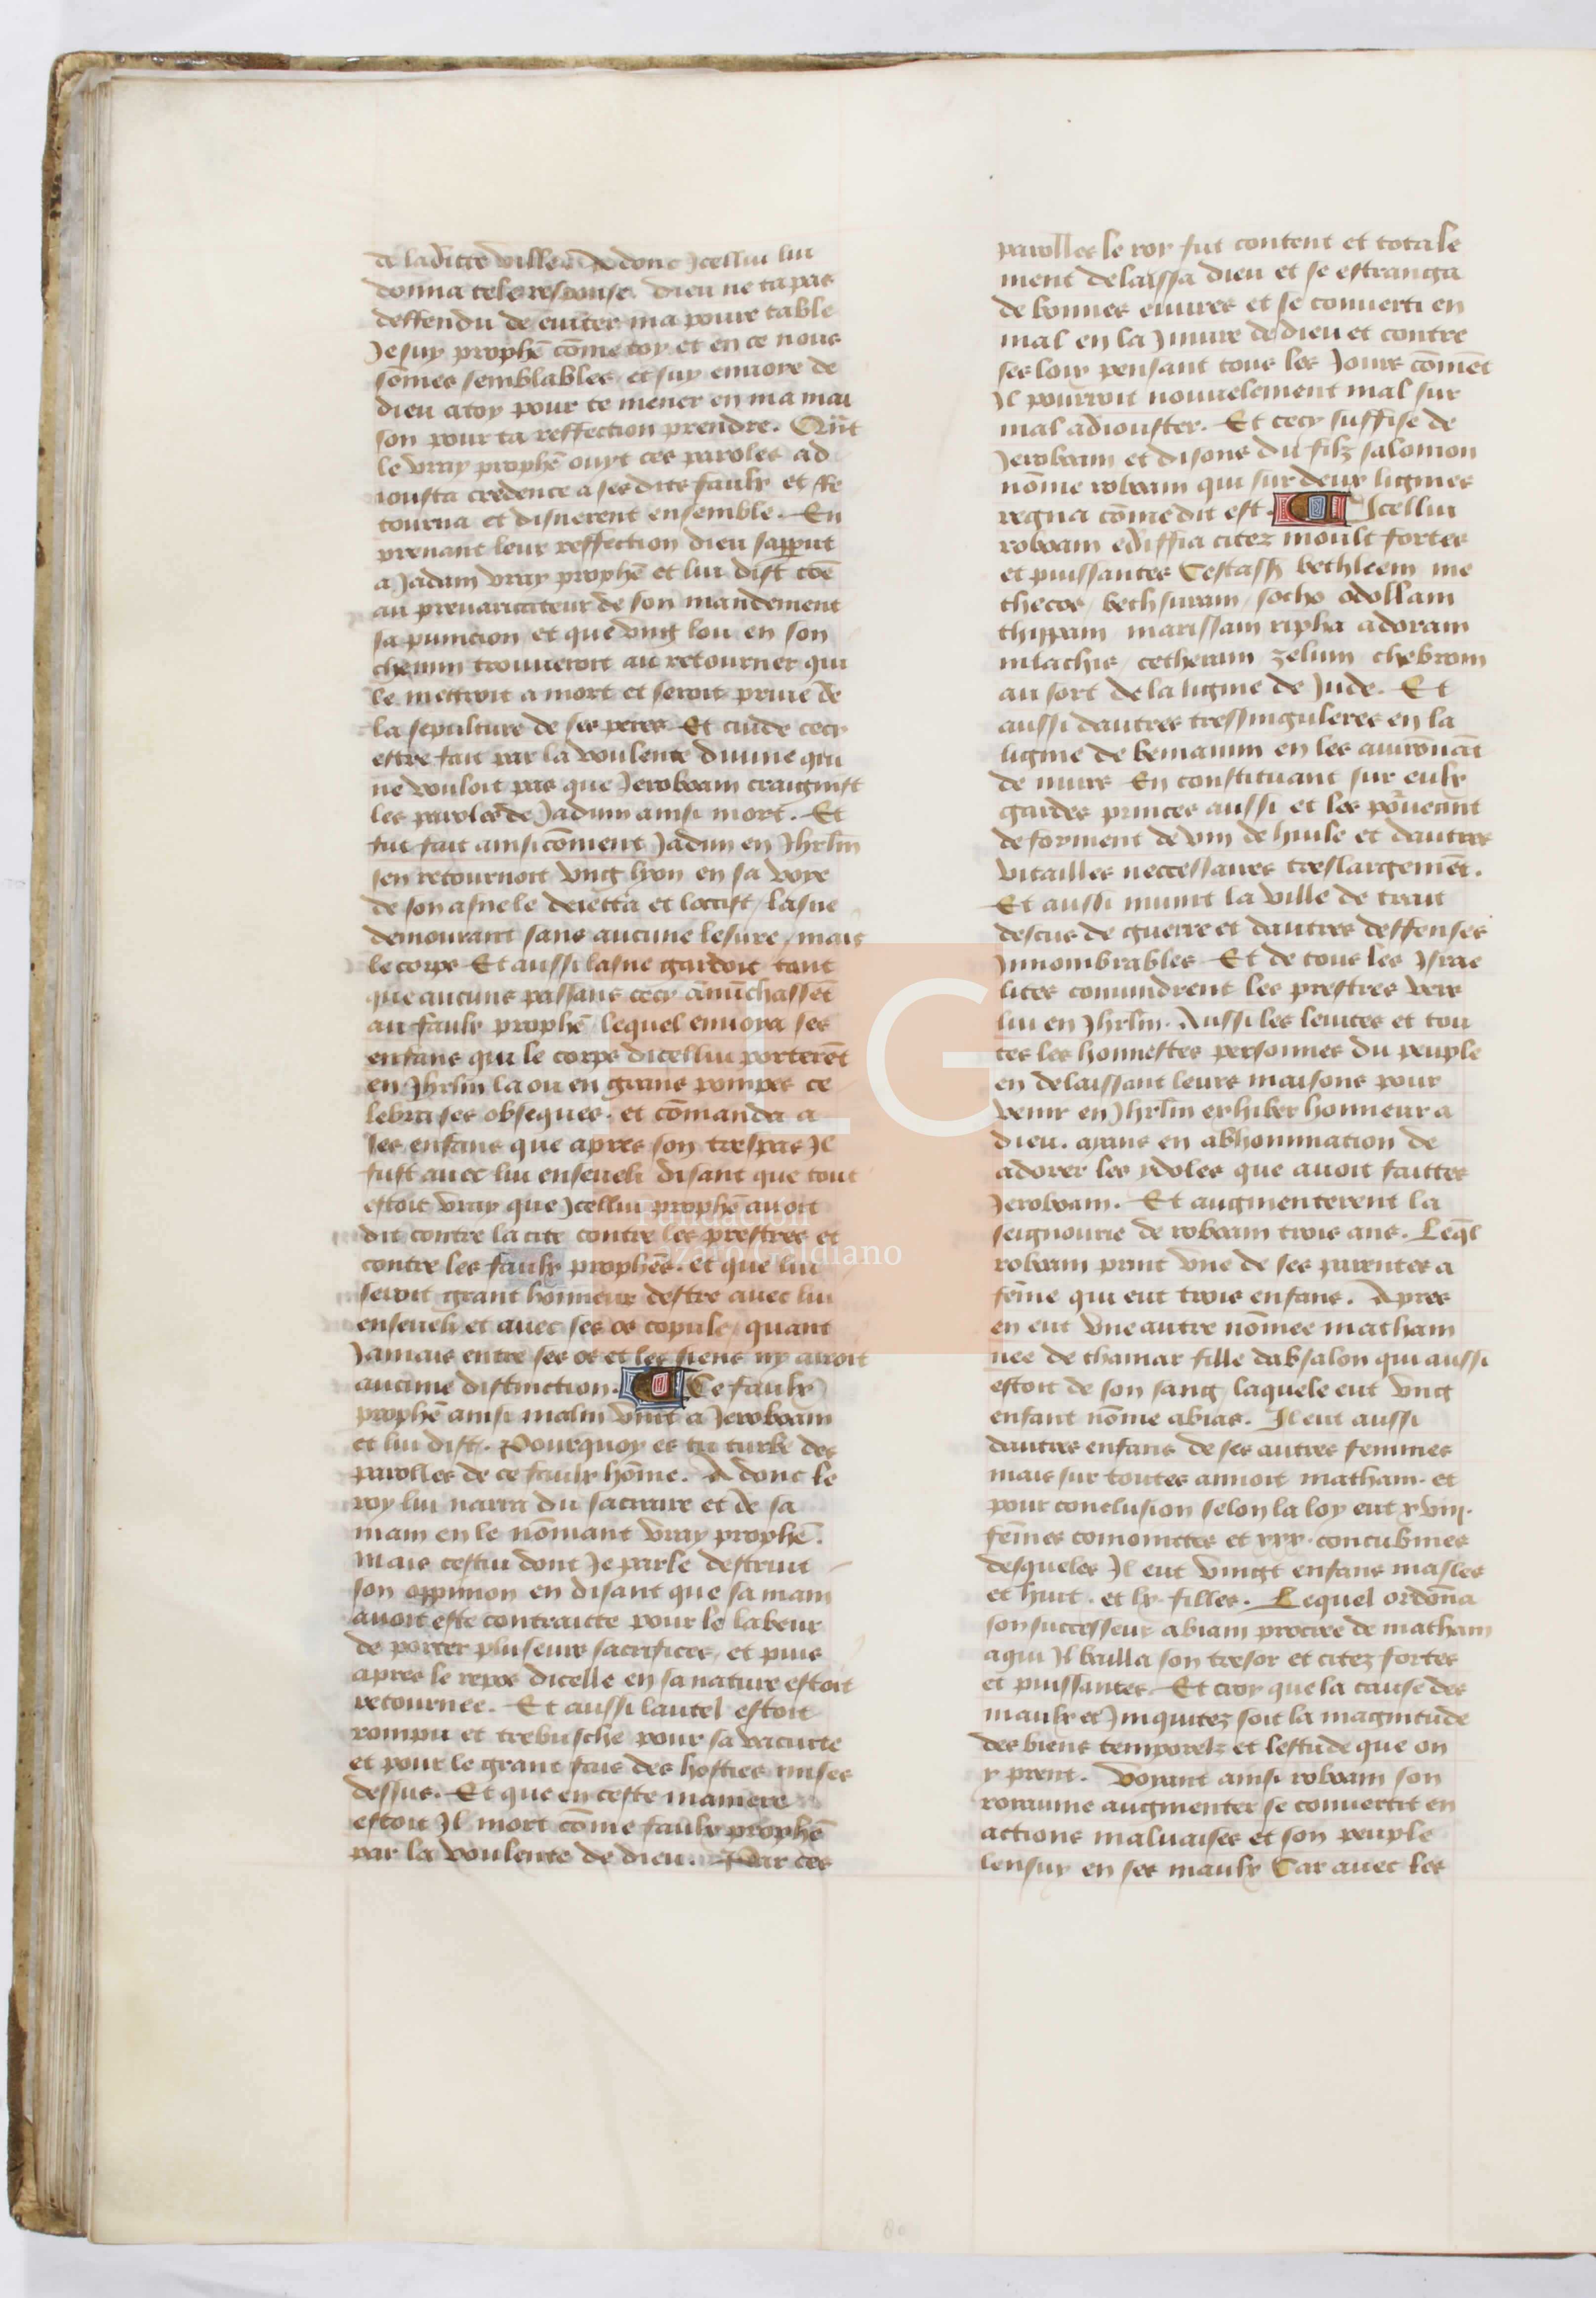 de ladicte ville A donc Jcellui lui
donna tele response. dieu ne ta pas
deffendu de euiter ma poure table
Je suy prophē cōme toy et en ce nous
sōmes semblables et suy enuoye de
dieu a toy pour te mener en ma mai
son pour ta reffection prendre. Qn̄t
le vray prophē ouyt ces paroles ad
iousta credence a ses dits faulx et Re
tourna et disnerent ensemble. En
prenant leur reffection dieu sapput
a Jadam vray prophē et lui dist cōe
au preuaricateur de son mandement
sa punicion et que vng lou en son
chemin trouueroit au retourner qui
le mettroit a mort et seroit priue de
la sepulture de ses peres Et cuide cecy
estre fait par la voulente diuine qui
ne vouloit pas que Jeroboam craignist
les paroles de Jadum ainsi mort. Et
fut fait ainsi cōment Jadun en Jhrlm̄
sen retournoit vng lyon en sa voye
de son asne le deietta et loccist / lasne
demourant sans aucune lesure / mais
le corps Et aussi lasne gardoit tant
que aucuns passans cecy ānūchassēt
au faulx prophē lequel enuoya ses
enfans qui le corps dicellui porterēt
en Jhrlm̄ la ou en grans pompes ce
lebra ses obseques. et cōmanda a
ses enfans que apres son trespas Jl
fust auec lui enseueli disant que tout
estoit vray que Jcellui prophē auoit
dit contre la cite contre les prestres et
contre les faulx prophēs. et que lui
seroit grant honneur destre auec lui
enseueli et auec ses os copule / quant
Jamais entre ses os et les siens ny auroit
aucune distinction. Ce faulx
prophē ainsi malin vint a Jeroboam
et lui dist. Pourquoy es tu turbe des
parolles de ce faulx hōme. A donc le
roy lui narra du sacraire et de sa
main en le nōmant vray prophē.
Mais cestui dont Je parle destruit
son oppinion en disant que sa main
auoit este contraitte pour le labeur
de porter pluseurs sacrifices / et puis
apres le repos dicelle en sa nature estoit
retournee. Et aussi lautel estoit
rompu et trebusche pour sa vacuite
et pour le grant fais des hosties mises
dessus. Et que en ceste maniere
estoit Jl mort cōme faulx prophē
par la voulente de dieu. Par ces
parolles le roy fut content et totale
ment delaissa dieu et se estranga
de bonnes euures et se conuerti en
mal en la Jniure de dieu et contre
ses loix pensant tous les Jours cōmēt
Jl pourroit nouuelement mal sur
mal adiouster. Et cecy suffise de
Jeroboam et disons du filz salomon
nōme roboam qui sur deux lignies
regna cōme dit est. Icellui
roboam ediffia citez moult fortes
et puissantes Cestass̄ bethleem me
thecos / bethsuram / socho odollam
thippam marissam ripha adoram
mlachis / cetheram zelum chebrom
au sort de la lignie de Jude. Et
aussi dautres tressinguleres en la
lignie de beniamin en les auirōnāt
de murs En constituant sur eulx
gardes princes aussi et les pourueant
de forment de vin de huile et dautres
vitailles neccessaires treslargemēt.
Et aussi munit la ville de trait
descus de guerre et dautres deffenses
Jnnombrables Et de tous les Jsrae
lites conuindrent les prestres vers
lui en Jhrlm̄. Aussi les leuites et tou
tes les honnestes personnes du peuple
en delaissant leurs maisons pour
venir en Jhrlm̄ exhiber honneur a
dieu. ayans en abhominacion de
adorer les ydoles que auoit faittes
Jeroboam. Et augmenterent la
seignourie de roboam trois ans. Leq̄l
roboam print vne de ses parentes a
fēme qui eut trois enfans. Apres
en eut vne autre nōmee matham
nee de thamar fille dabsalon qui aussi
estoit de son sang / laquele eut vng
enfant nōme abias. Il eut aussi
dautres enfans de ses autres femmes
mais sur toutes aimoit matham. et
pour conclusion selon la loy eut xviij.
fēmes comoinctes et xxx. concubines
desqueles Jl eut vingt enfans masles
et huit. et lx. filles. Lequel ordōna
son successeur abiam procree de matham
a qui Jl bailla son tresor et citez fortes
et puissantes Et croy que la cause des
maulx et Jniquitez soit la magnitude
des biens temporelz et lestude que on
y prent. Voyant ainsi roboam son
royaume augmenter se conuertit en
actions maluaises et son peuple
lensuy en ses maulx Car auec les
Fundación
Lázaro Galdiano